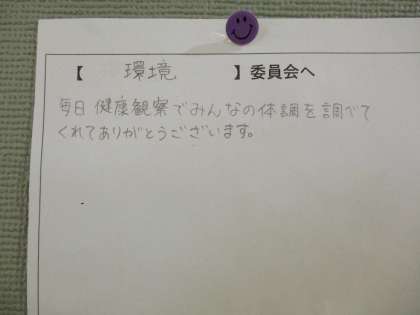 【 環境 】委員会へ
毎日健康観察でみんなの体調を調べて
くれてありがとうございます。